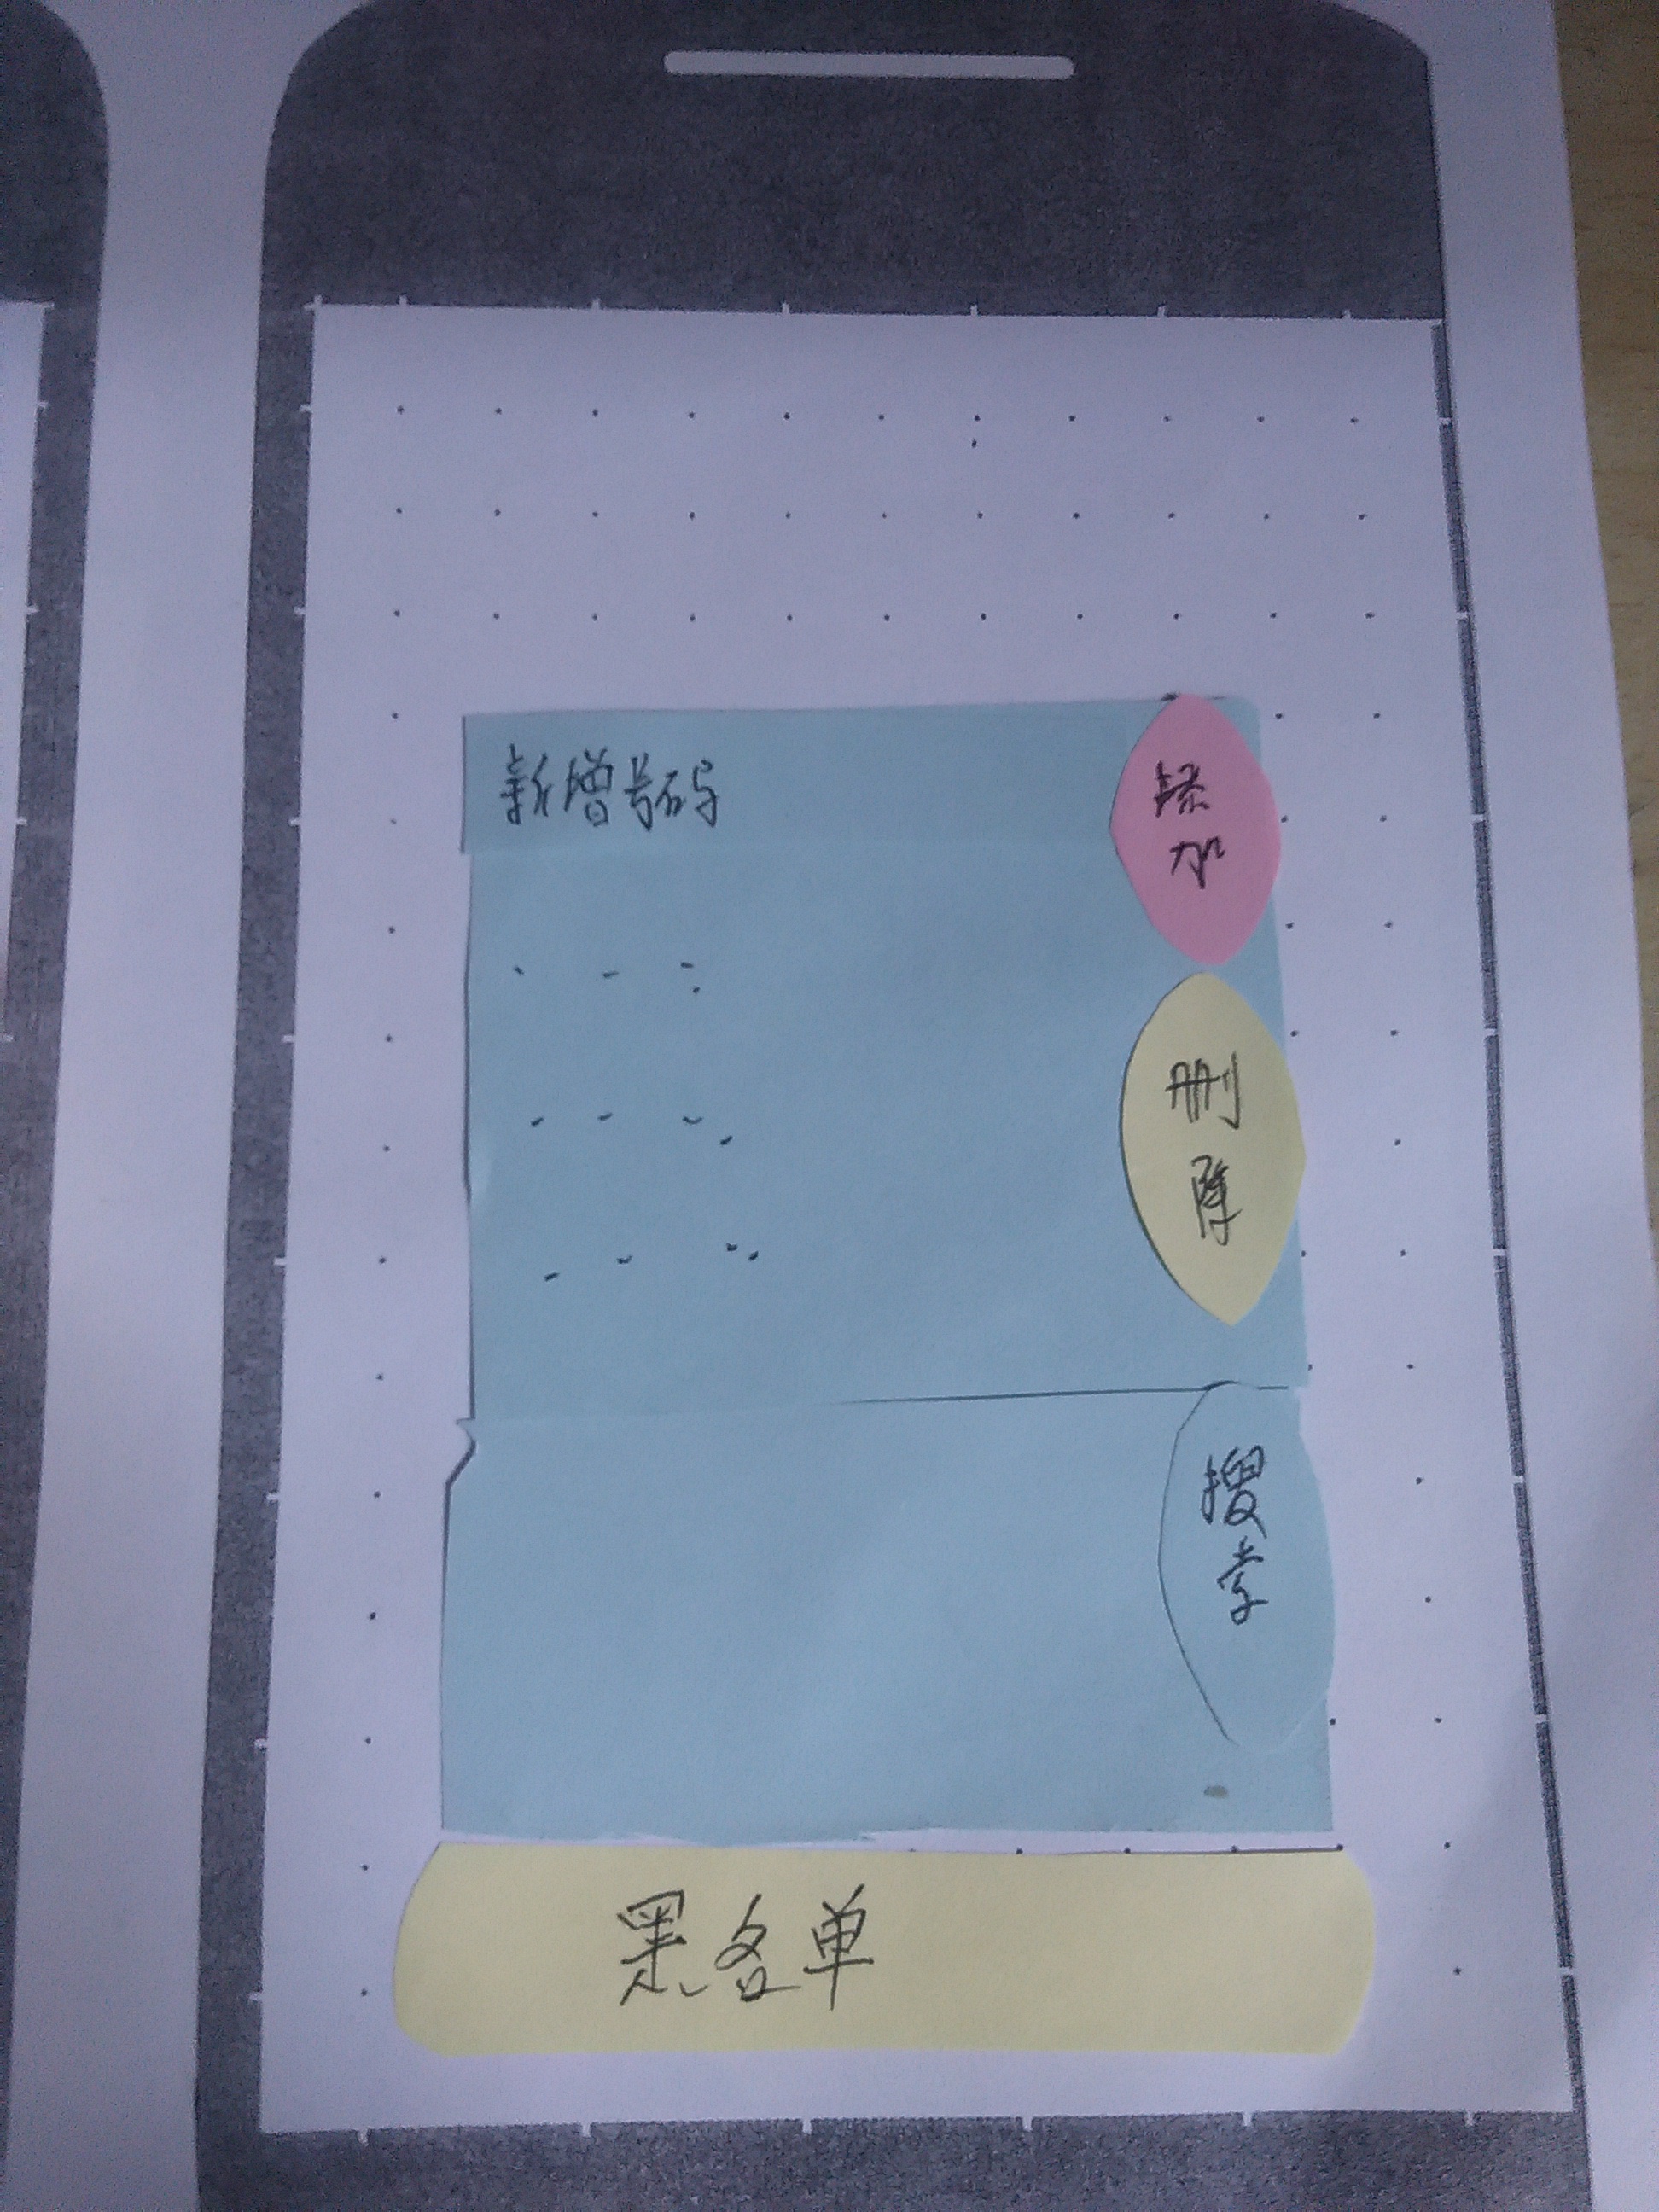 新增号码
添
加
删
除
搜
索
黑名单